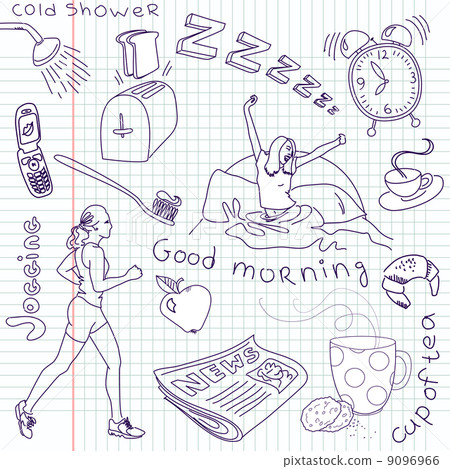 cold shower
ZZZZZZZ
Good morning
Jogging
NEWS
cup of tea
9096966